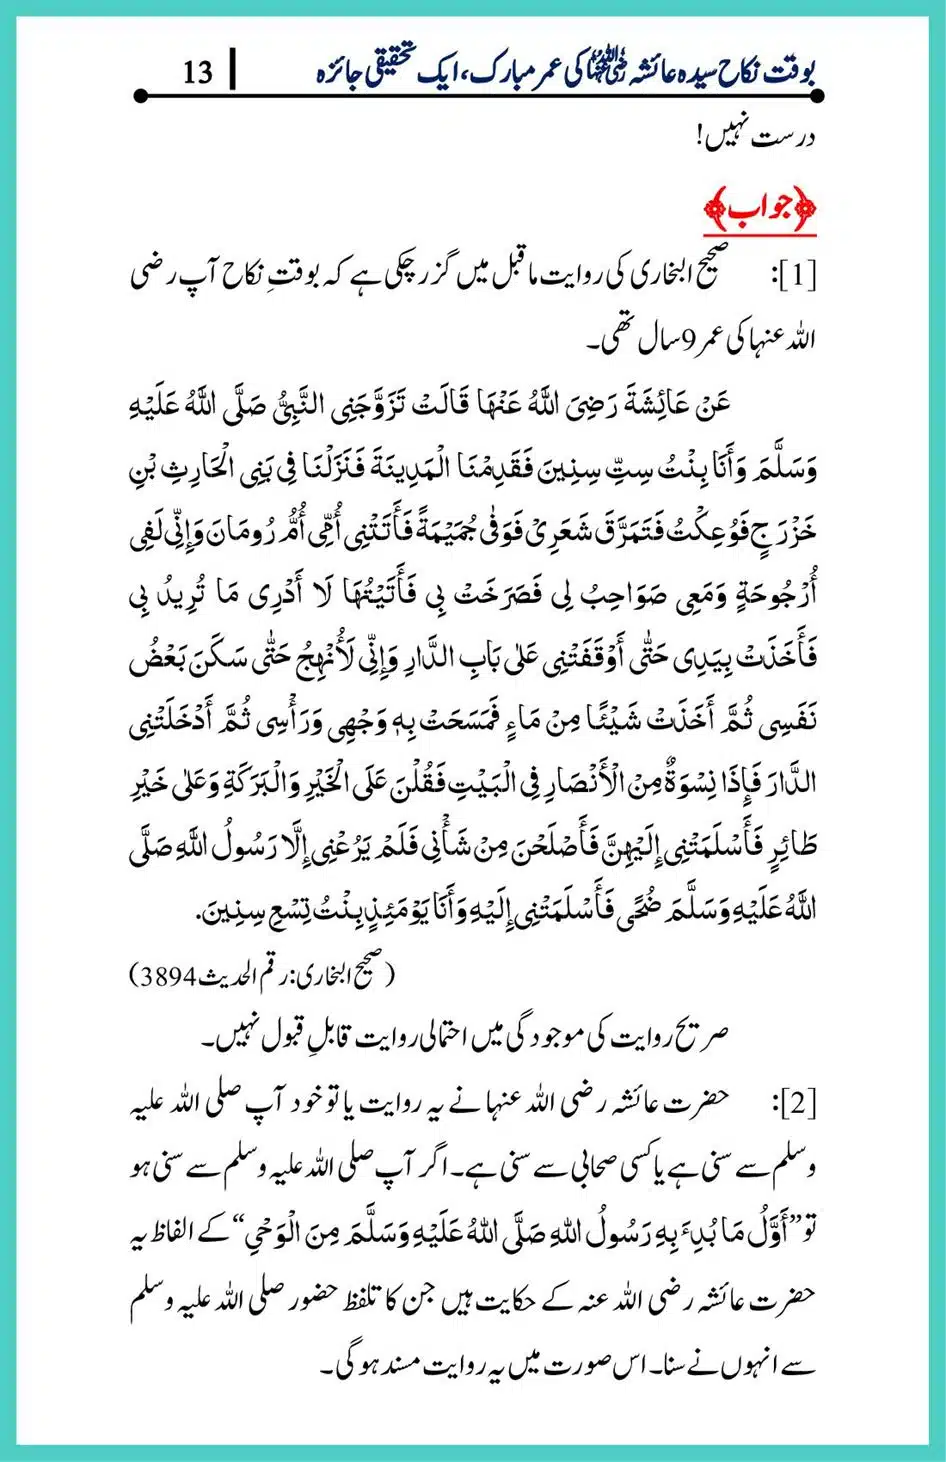 بوقت نکاح سیدہ عائشہ رضی اللہ عنہا کی عمر مبارک، ایک تحقیقی جائزہ | 13
درست نہیں!
﴿جواب﴾
[1]: صحیح البخاری کی روایت ماقبل میں گزر چکی ہے کہ بوقتِ نکاح آپ رضی
اللہ عنہا کی عمر 9 سال تھی۔
عَنْ عَائِشَةَ رَضِیَ اللَّهُ عَنْهَا قَالَتْ تَزَوَّجَنِی النَّبِیُّ صَلَّی اللَّهُ عَلَيْهِ
وَسَلَّمَ وَأَنَا بِنْتُ سِتِّ سِنِينَ فَقَدِمْنَا الْمَدِينَةَ فَنَزَلْنَا فِی بَنِی الْحَارِثِ بْنِ
خَزْرَجٍ فَوُعِكْتُ فَتَمَرَّقَ شَعَرِیْ فَوَفٰی جُمَيْمَةً فَأَتَتْنِی أُمِّی أُمُّ رُومَانَ وَإِنِّی لَفِی
أُرْجُوحَةٍ وَمَعِی صَوَاحِبُ لِی فَصَرَخَتْ بِی فَأَتَيْتُهَا لَا أَدْرِی مَا تُرِيدُ بِی
فَأَخَذَتْ بِيَدِی حَتّٰی أَوْقَفَتْنِی عَلٰی بَابِ الدَّارِ وَإِنِّی لَأُنْهِجُ حَتّٰی سَكَنَ بَعْضُ
نَفَسِی ثُمَّ أَخَذَتْ شَيْئًا مِنْ مَاءٍ فَمَسَحَتْ بِهٖ وَجْهِی وَرَأْسِی ثُمَّ أَدْخَلَتْنِی
الدَّارَ فَإِذَا نِسْوَةٌ مِنْ الْأَنْصَارِ فِی الْبَيْتِ فَقُلْنَ عَلَی الْخَيْرِ وَالْبَرَكَةِ وَعَلٰی خَيْرِ
طَائِرٍ فَأَسْلَمَتْنِی إِلَيْهِنَّ فَأَصْلَحْنَ مِنْ شَأْنِی فَلَمْ يَرُعْنِی إِلَّا رَسُولُ اللَّهِ صَلَّی
اللَّهُ عَلَيْهِ وَسَلَّمَ ضُحًی فَأَسْلَمَتْنِی إِلَيْهِ وَأَنَا يَوْمَئِذٍ بِنْتُ تِسْعِ سِنِينَ.
(صحیح البخاری: رقم الحدیث 3894)
صریح روایت کی موجودگی میں احتمالی روایت قابلِ قبول نہیں۔
[2]: حضرت عائشہ رضی اللہ عنہا نے یہ روایت یا تو خود آپ صلی اللہ علیہ
وسلم سے سنی ہے یا کسی صحابی سے سنی ہے۔ اگر آپ صلی اللہ علیہ وسلم سے سنی ہو
تو ”أَوَّلُ مَا بُدِیَٔ بِهِ رَسُولُ اللهِ صَلَّی اللهُ عَلَيْهِ وَسَلَّمَ مِنَ الْوَحْیِ“ کے الفاظ یہ
حضرت عائشہ رضی اللہ عنہ کے حکایت ہیں جن کا تلفظ حضور صلی اللہ علیہ وسلم
سے انہوں نے سنا۔ اس صورت میں یہ روایت مسند ہو گی۔